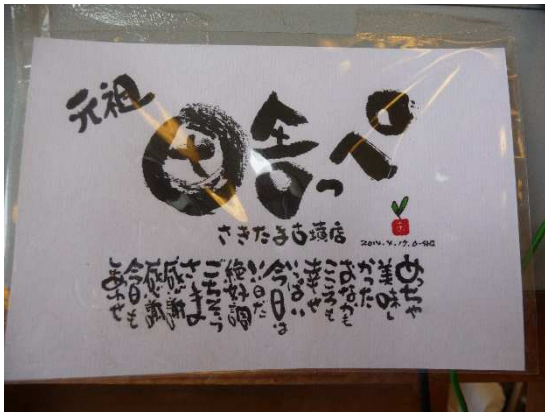 元祖
田舎っぺ
さきたま古墳店
めっちゃ
美味し
かった
おなかも
こころも
幸せ
いっぱい
今日は
いい日だ
絶好調
ごちそう
さま
感謝
感謝
今日も
しあわせ